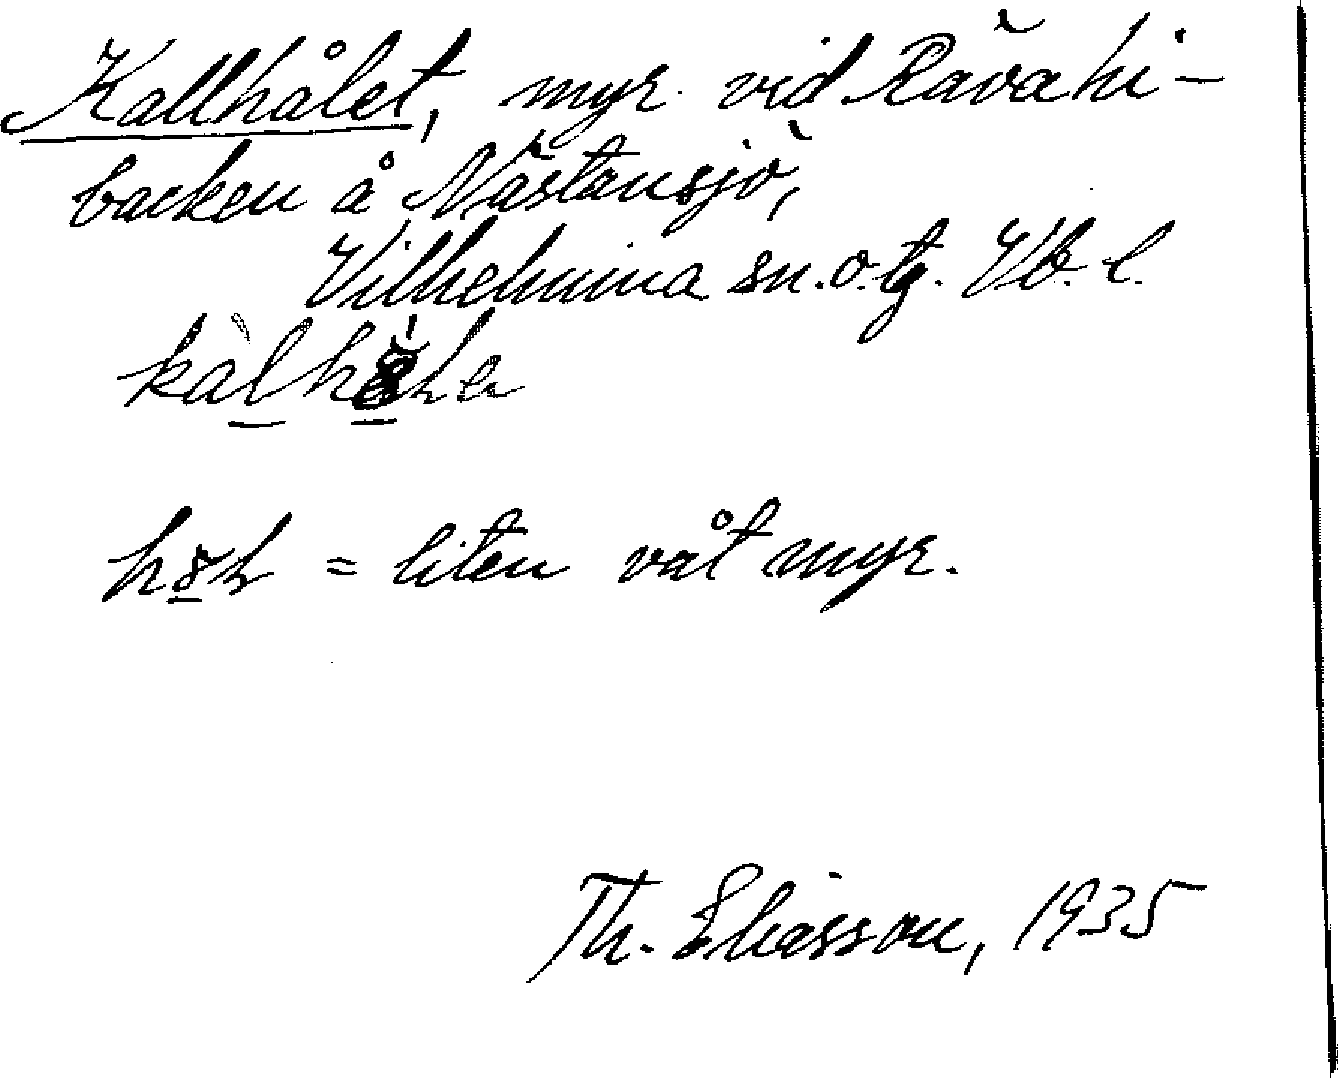 Kallhålet, myr vid Rävahi-
backen å Nästansjö,
Vilhelmina sn. o. tg. Vb. l.
= liten våt myr.
Th. Eliasson, 1935